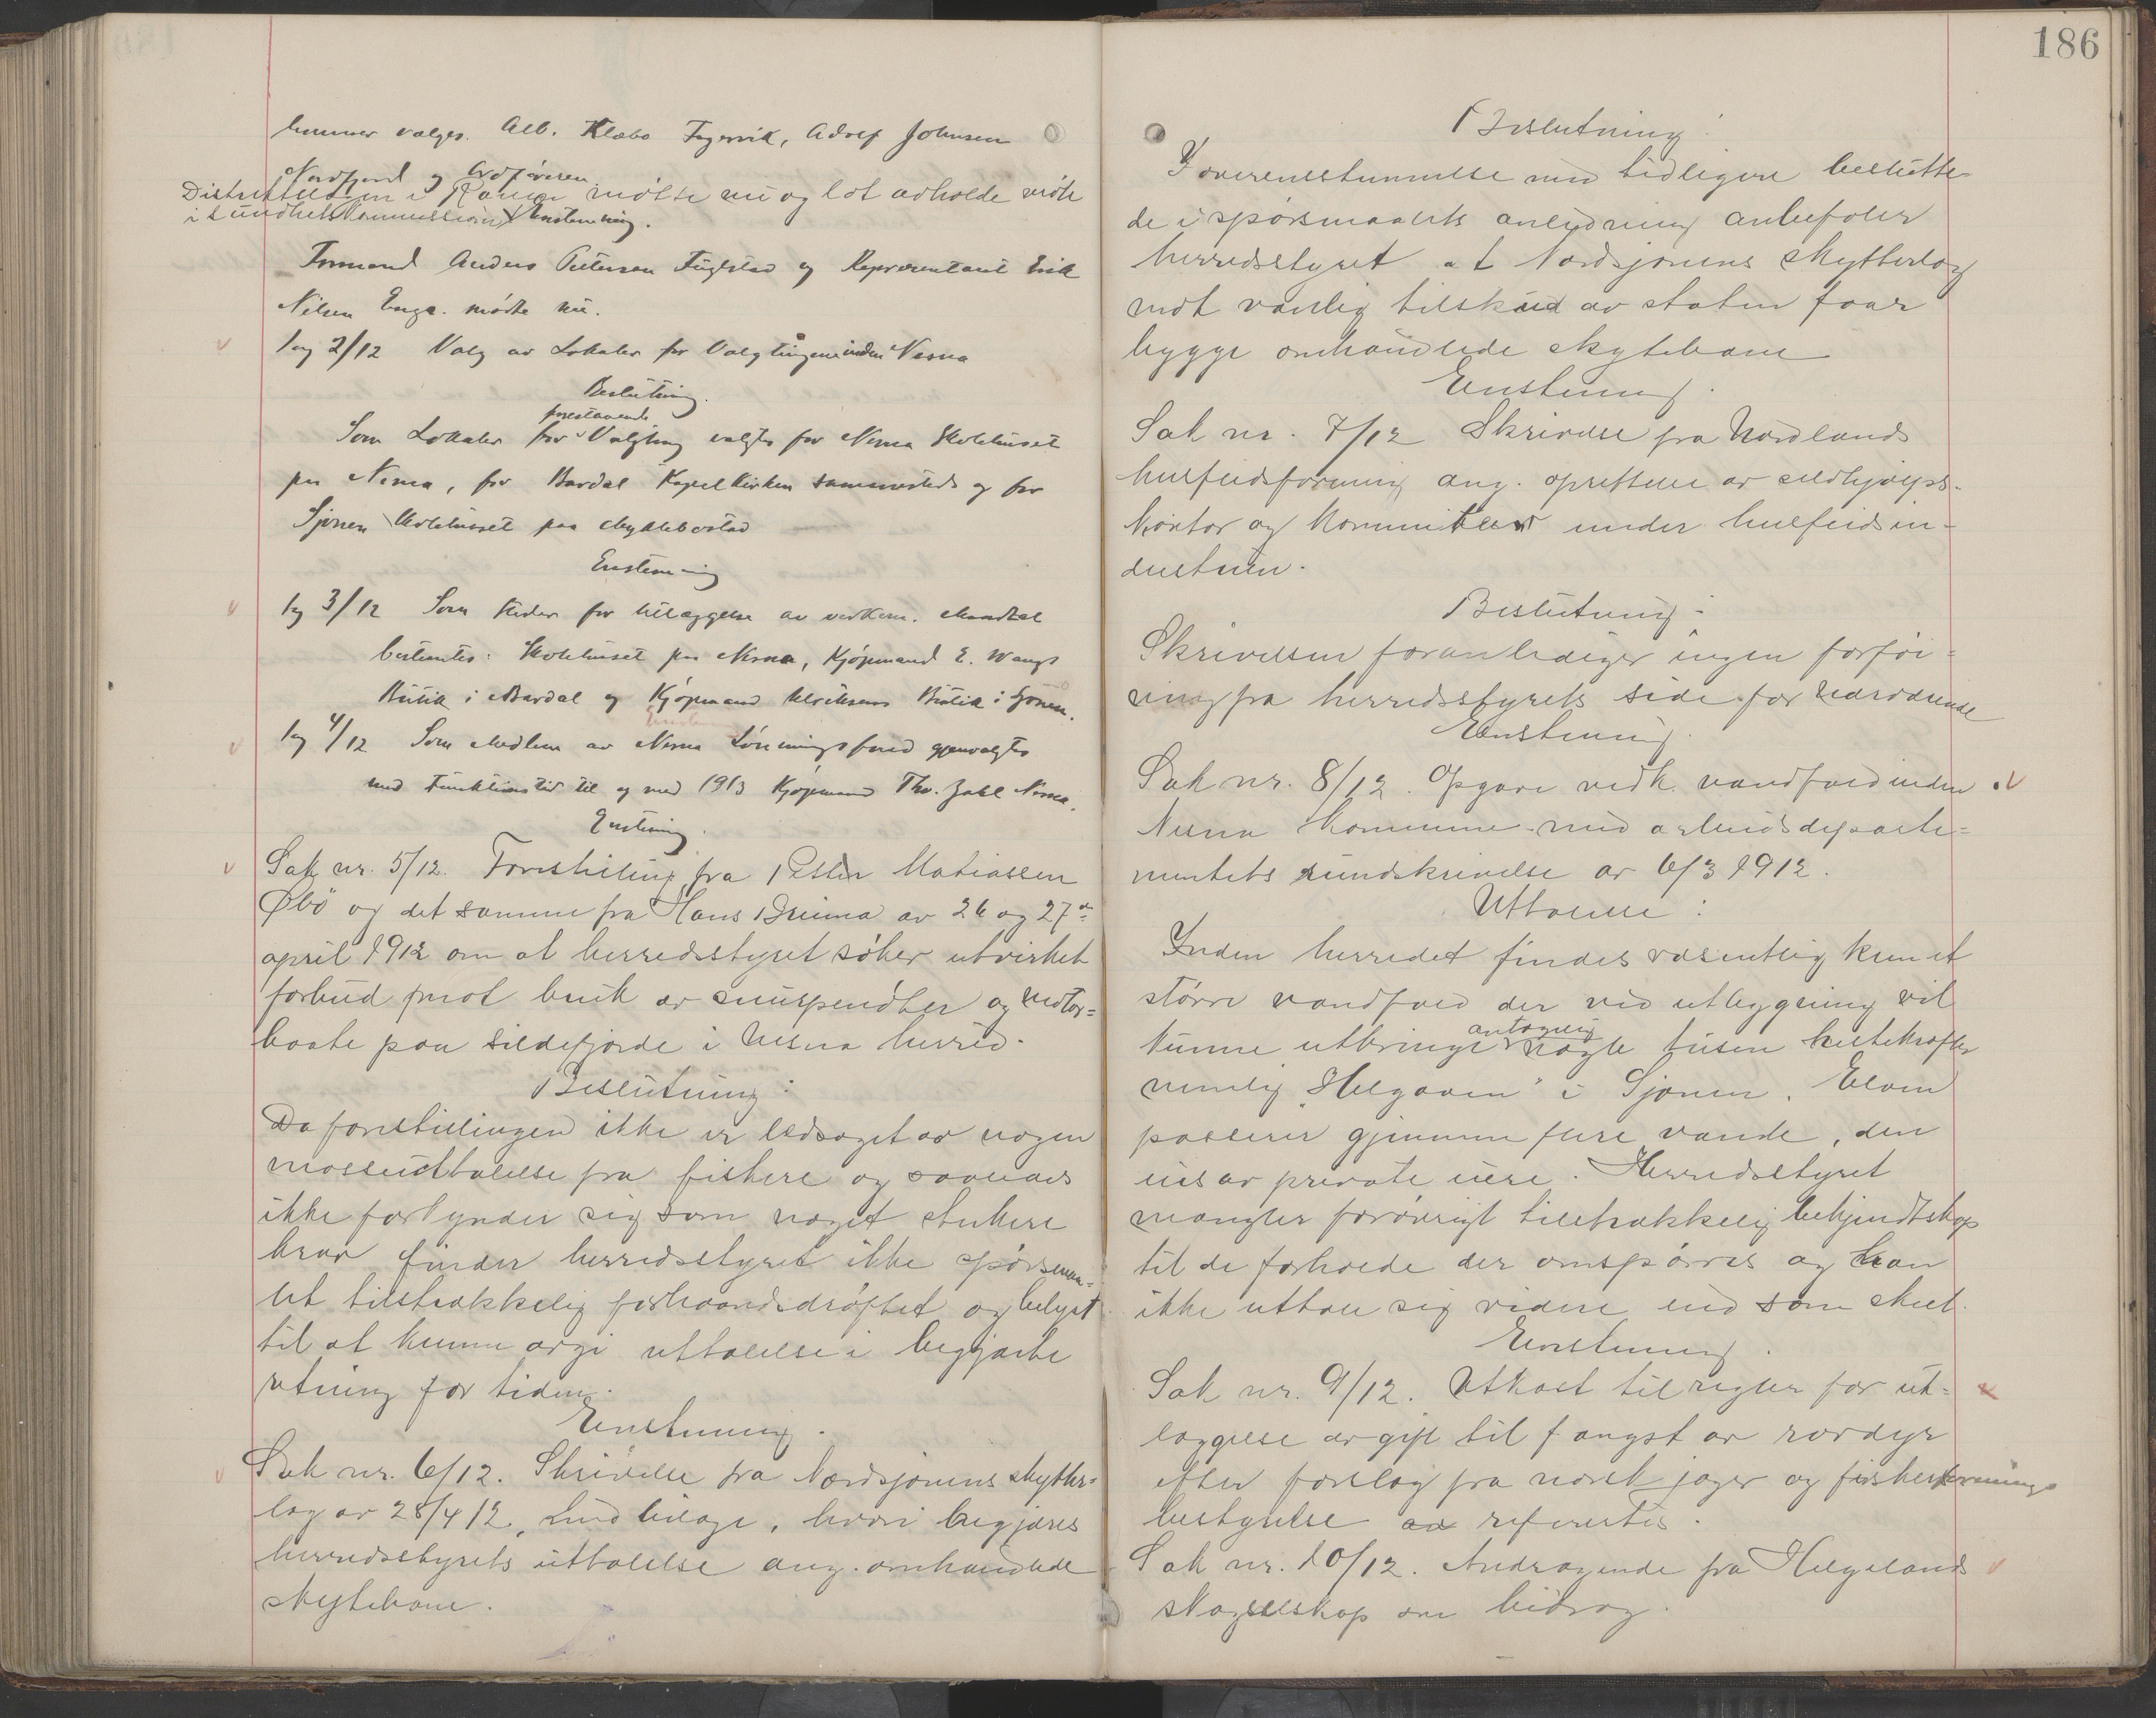 186
hunner vælges. Alb. Klæbo Fagervik, Adolf Johnsen
Nordfjord og Ordføreren
Distriktslægen i Ranen møtte nu og lot avholde møte
i sundhetskommission. Enstemmig.
Formand Anders Pettersen Fuglstad og Representant Erik
Nilsen Enga. mødte nu.
Sag 2/12 Valg av Lokaler for Valgtingene inden Nesna
Beslutning.
forestaaende
Som Lokaler for Valgting valgtes for Nesna Skolehuset
paa Nesna, for Bardal Kapelkirken sammesteds og for
Sjonen Skolehuset paa Myklebostad
Enstemmig
Sag 3/12 Som steder for utlæggelse av vedkom. Mandtal
bestemtes: Skolehuset paa Nesna, Kjøpmand E. Wangs
Butik i Bardal og Kjøpmand Ulriksens Butik i Sjonen.
Sag 4/12 Som Medlem av Nesna Forliksraad gjenvalgtes
med Funktionstid til og med 1913 Kjøpmand Th. Zahl Nesna.
Enstemmig.
Sak nr. 5/12. Forestilling fra Petter Matiassen
Øbø og det samme fra Hans Bruma av 26 og 27de
april 1912 om at herredsstyret søker utvirket
forbud mot bruk av snurpenøter og motor=
baate paa sildefjorde i Nesna herred.
Beslutning:
Da forestillingen ikke er ledsaget av nogen
masseuttalelse fra fiskere og saavels
ikke forkynder sig som noget sterkere
krav finder herredsstyret ikke spørsmaa=
let tilstrækkelig forhaandsdrøftet og belyst
til at kunne avgi uttalelse i begjærte
retning for tiden.
Enstemmig.
Sak nr. 6/12. Skrivelse fra Nordsjonens skytter=
lag av 28/4 12, med bilage, hvori begjæres
herredsstyrets uttalelse ang. omhandlede
skytebane.
Beslutning:
I overensstemmelse med tidligere beslutte-
de i spørsmaalets anledning anbefaler
herredsstyret at Nordsjonens Skytterlag
mot vanlig tilskud av staten faar
bygge omhandlede skytebane
Enstemmig.
Sak nr. 7/12 Skrivelse fra Nordlands
husflidsforening ang. oprettelse av selvhjælps-
kontor og kommiteer under husflidsin-
dustrien.
Beslutning:
Skrivelsen foranlediger ingen forføi=
ning fra herredsstyrets side for nærværende
Enstemmig.
Sak nr. 8/12. Opgave vedk. vandfald inden
Nesna kommune med arbeidsdeparte=
mentets rundskrivelse av 6/3 1912.
Uttalelse:
Inden herredet findes væsentlig kun et
større vandfald der ved utbygning vil
antagelig
kunne utbringe nogle tusen hestekræfter
nemlig „Helgaaen" i Sjonen. Elven
passerer gjennem flere vande, den
eies av private eiere. Herredsstyret
mangler forøvrigt tilstrækkelig bekjendtskap
til de forholde der omspørres og kan
ikke uttale sig videre end som skeet.
Enstemmig.
Sak nr. 9/12. Utkast til regler for ut=
læggelse av gift til fangst av rovdyr
efter forslag fra norsk jæger og fiskerforenings
bestyrelse refereertes.
Sak nr. 10/12. Andragende fra Helgelands
skogselskap om bidrag.